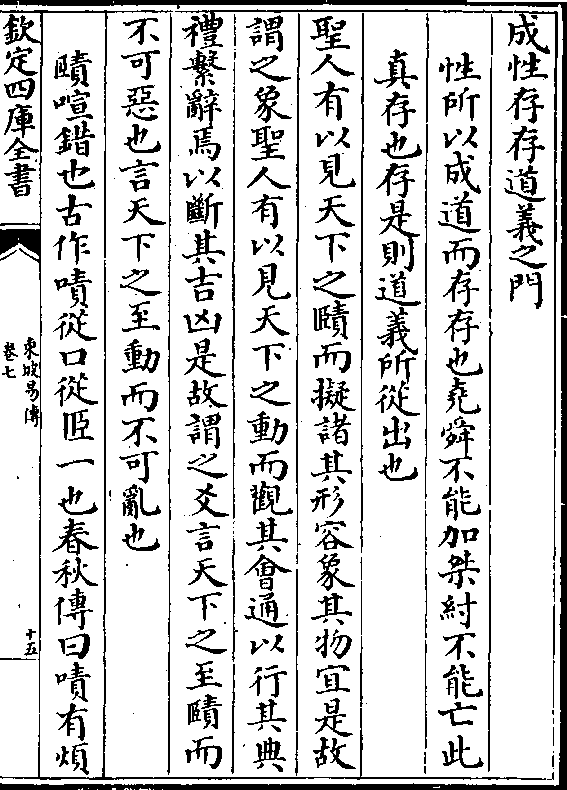 成性存存道義之門
性所以成道而存存也堯舜不能加桀紂不能亡此
真存也存是則道義所從出也
聖人有以見天下之賾而擬諸其形容象其物宜是故
謂之象聖人有以見天下之動而觀其會通以行其典
禮繫辭焉以斷其吉凶是故謂之爻言天下之至賾而
不可惡也言天下之至動而不可亂也
賾喧錯也古作嘖從口從𦣞一也春秋傳曰嘖有煩
欽定四庫全書
東坡易傳
卷七
十五